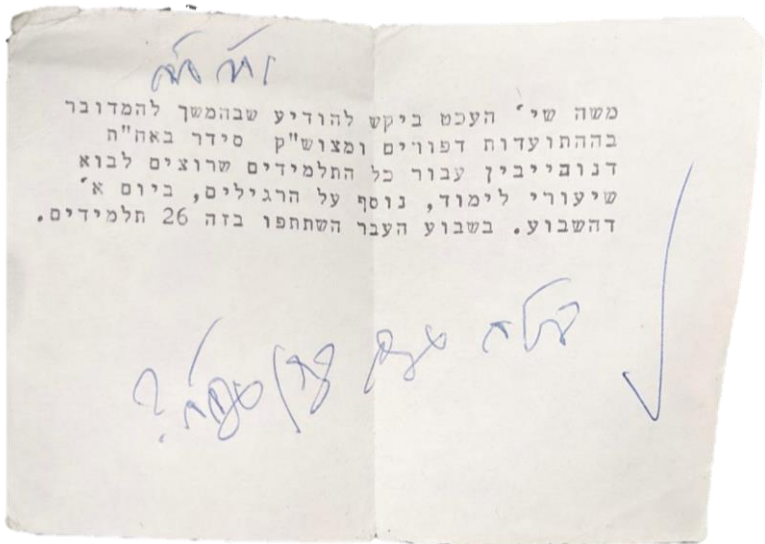 משה שי' העכט ביקש להודיע שבהמשך להמדובר
בההתועדות דפורים ומצוש"ק סידר באח"ת
דנוהייבין עבור כל התלמידים שרוצים לבוא
שיעורי לימוד, נוסף על הרגילים, ביום א'
דהשבוע. בשבוע העבר השתתפו בזה 26 תלמידים.